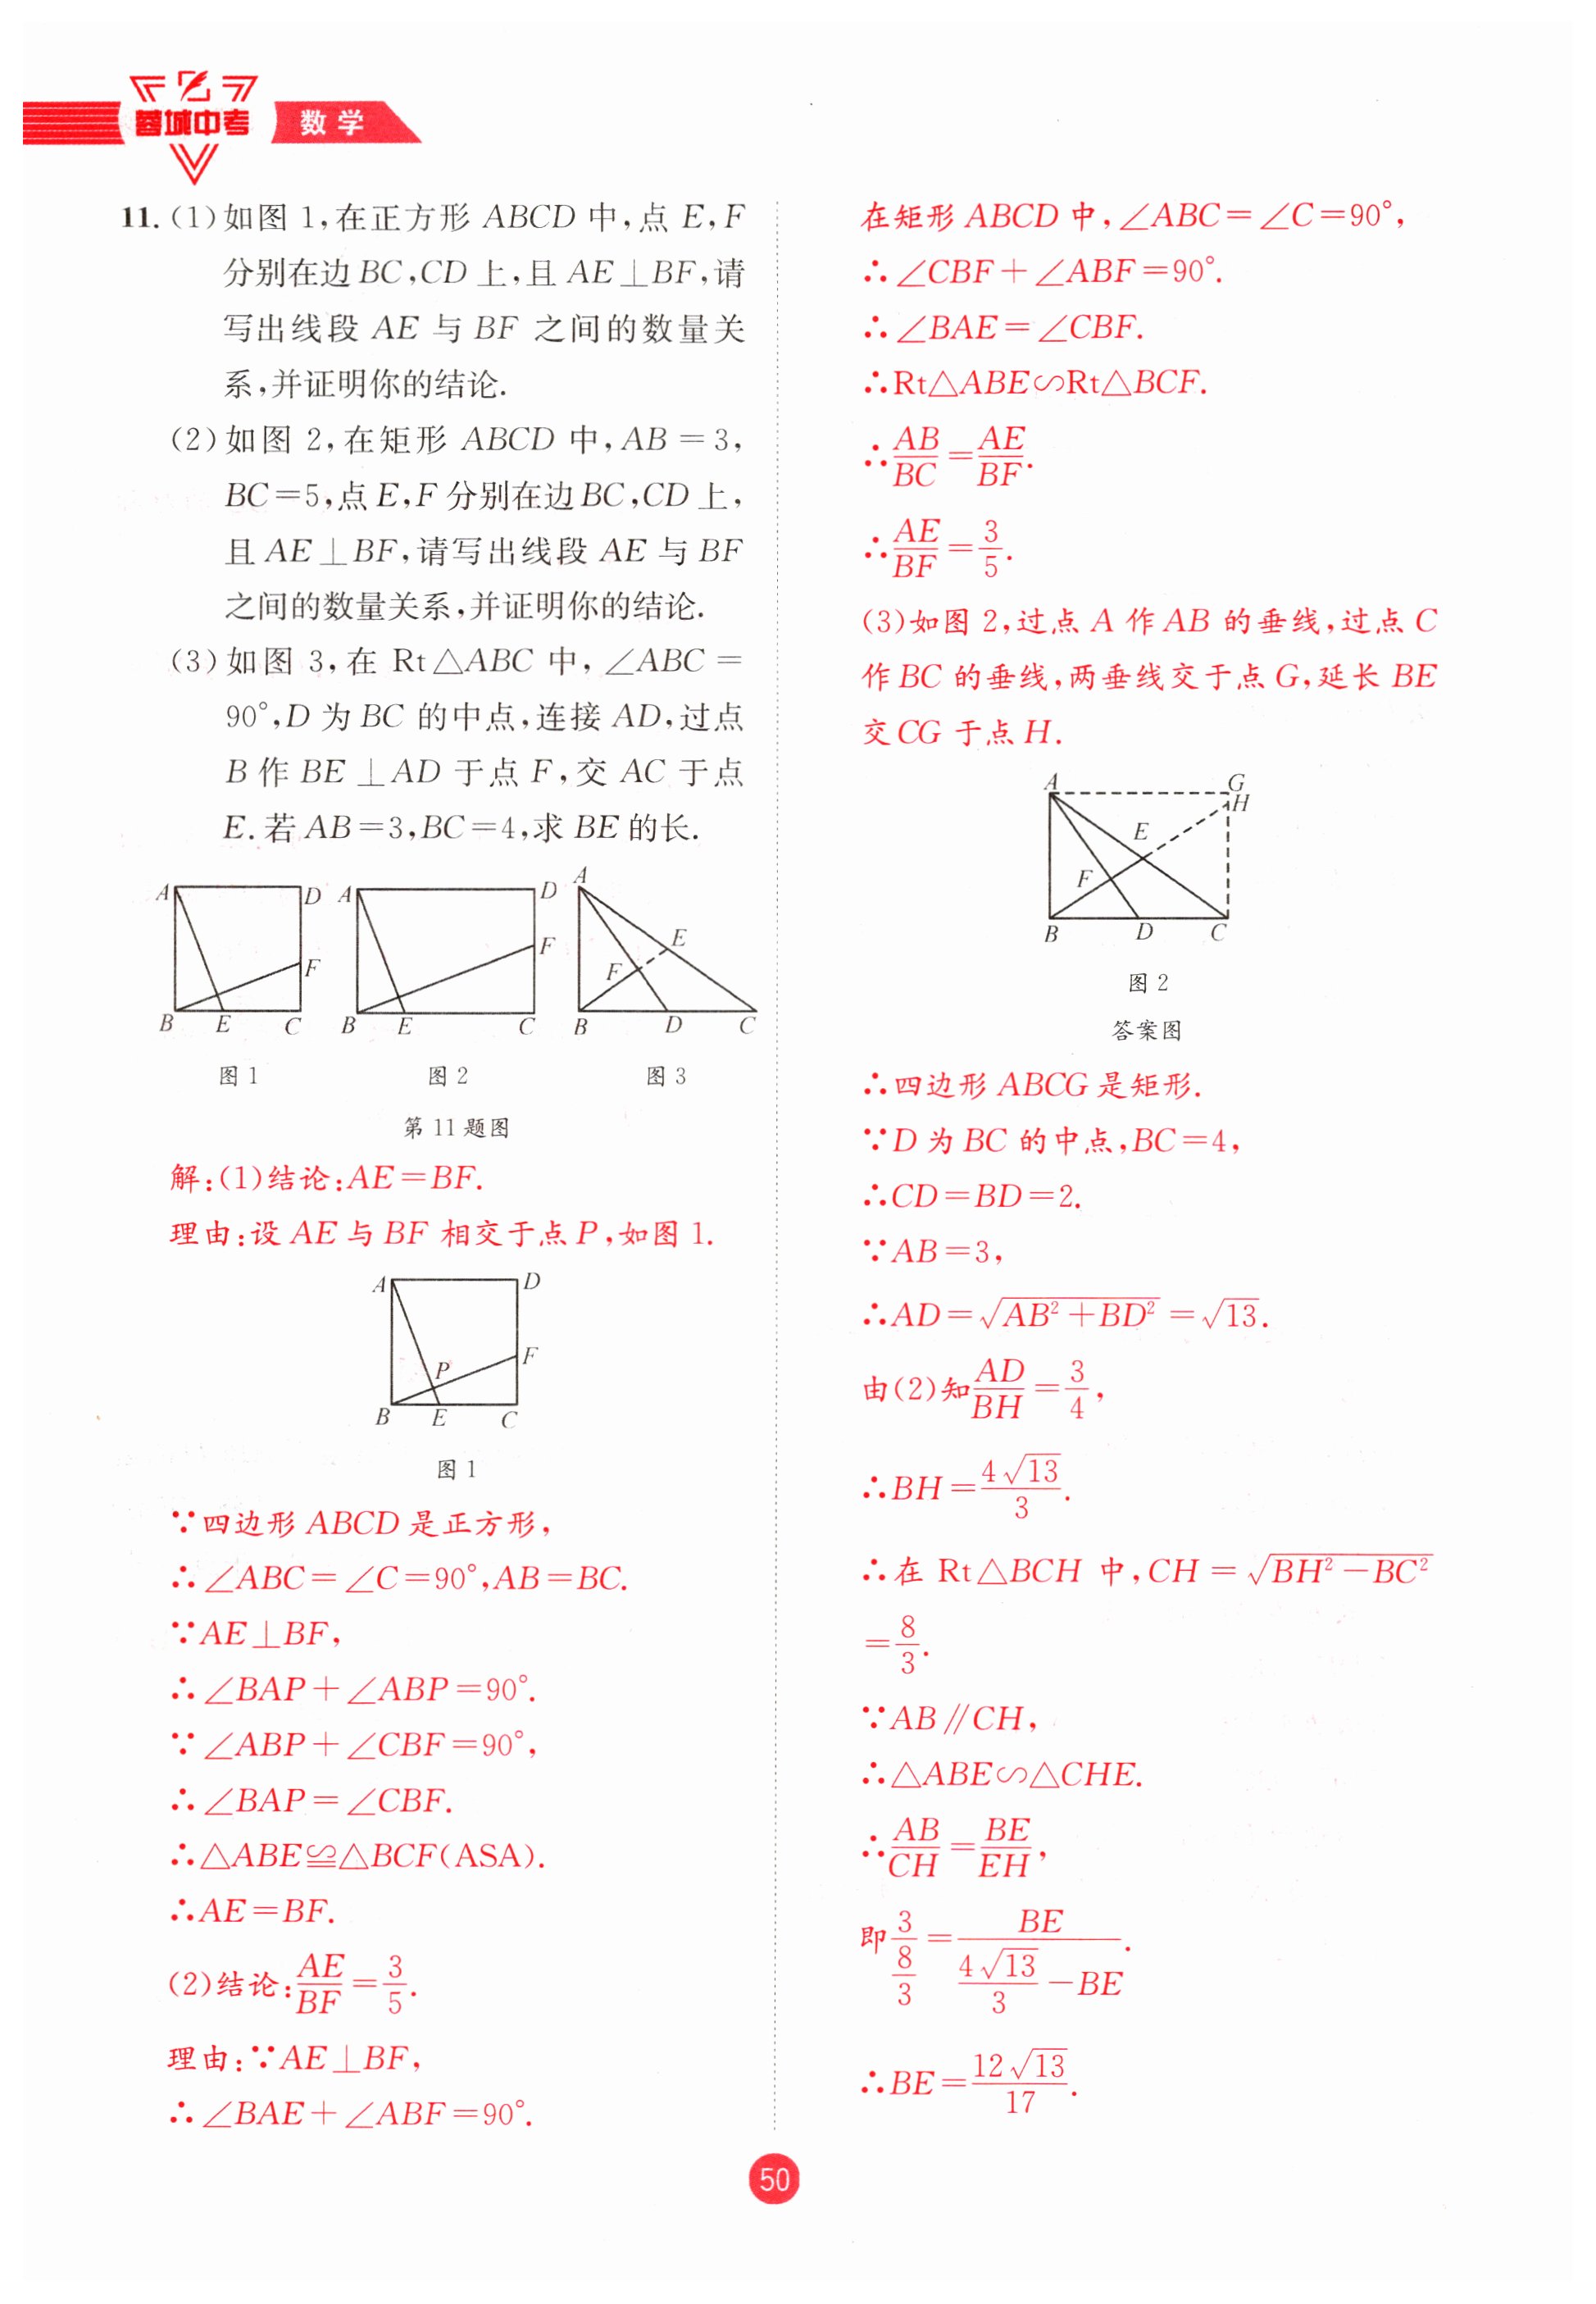 蓉城中考
数学
11.(1)如图 1,在正方形 ABCD 中,点 E,F
分别在边 BC,CD 上,且 AE⊥BF,请
写出线段 AE 与 BF 之间的数量关
系,并证明你的结论.
(2)如图 2,在矩形 ABCD 中,AB=3,
BC=5,点 E,F 分别在边 BC,CD 上,
且 AE⊥BF,请写出线段 AE 与 BF
之间的数量关系,并证明你的结论.
(3)如图 3,在 Rt△ABC 中,∠ABC=
90°,D 为 BC 的中点,连接 AD,过点
B 作 BE⊥AD 于点 F,交 AC 于点
E.若 AB=3,BC=4,求 BE 的长.
A D F B E C
A D F B E C
A E F B D C
图 1 图 2 图 3
第 11 题图
解:(1)结论:AE=BF.
理由:设 AE 与 BF 相交于点 P,如图 1.
A D P F B E C
图 1
∵四边形 ABCD 是正方形,
∴∠ABC=∠C=90°,AB=BC.
∵AE⊥BF,
∴∠BAP+∠ABP=90°.
∵∠ABP+∠CBF=90°,
∴∠BAP=∠CBF.
∴△ABE≌△BCF(ASA).
∴AE=BF.
(2)结论:AE/BF=3/5.
理由:∵AE⊥BF,
∴∠BAE+∠ABF=90°.
在矩形 ABCD 中,∠ABC=∠C=90°,
∴∠CBF+∠ABF=90°.
∴∠BAE=∠CBF.
∴Rt△ABE∽Rt△BCF.
∴AB/BC=AE/BF.
∴AE/BF=3/5.
(3)如图 2,过点 A 作 AB 的垂线,过点 C
作 BC 的垂线,两垂线交于点 G,延长 BE
交 CG 于点 H.
A G H E F B D C
图 2
答案图
∴四边形 ABCG 是矩形.
∵D 为 BC 的中点,BC=4,
∴CD=BD=2.
∵AB=3,
∴AD=√(AB²+BD²)=√13.
由(2)知AD/BH=3/4,
∴BH=4√13/3.
∴在 Rt△BCH 中,CH=√(BH²−BC²)
=8/3.
∵AB∥CH,
∴△ABE∽△CHE.
∴AB/CH=BE/EH,
即3/(8/3)=BE/(4√13/3−BE).
∴BE=12√13/17.
50